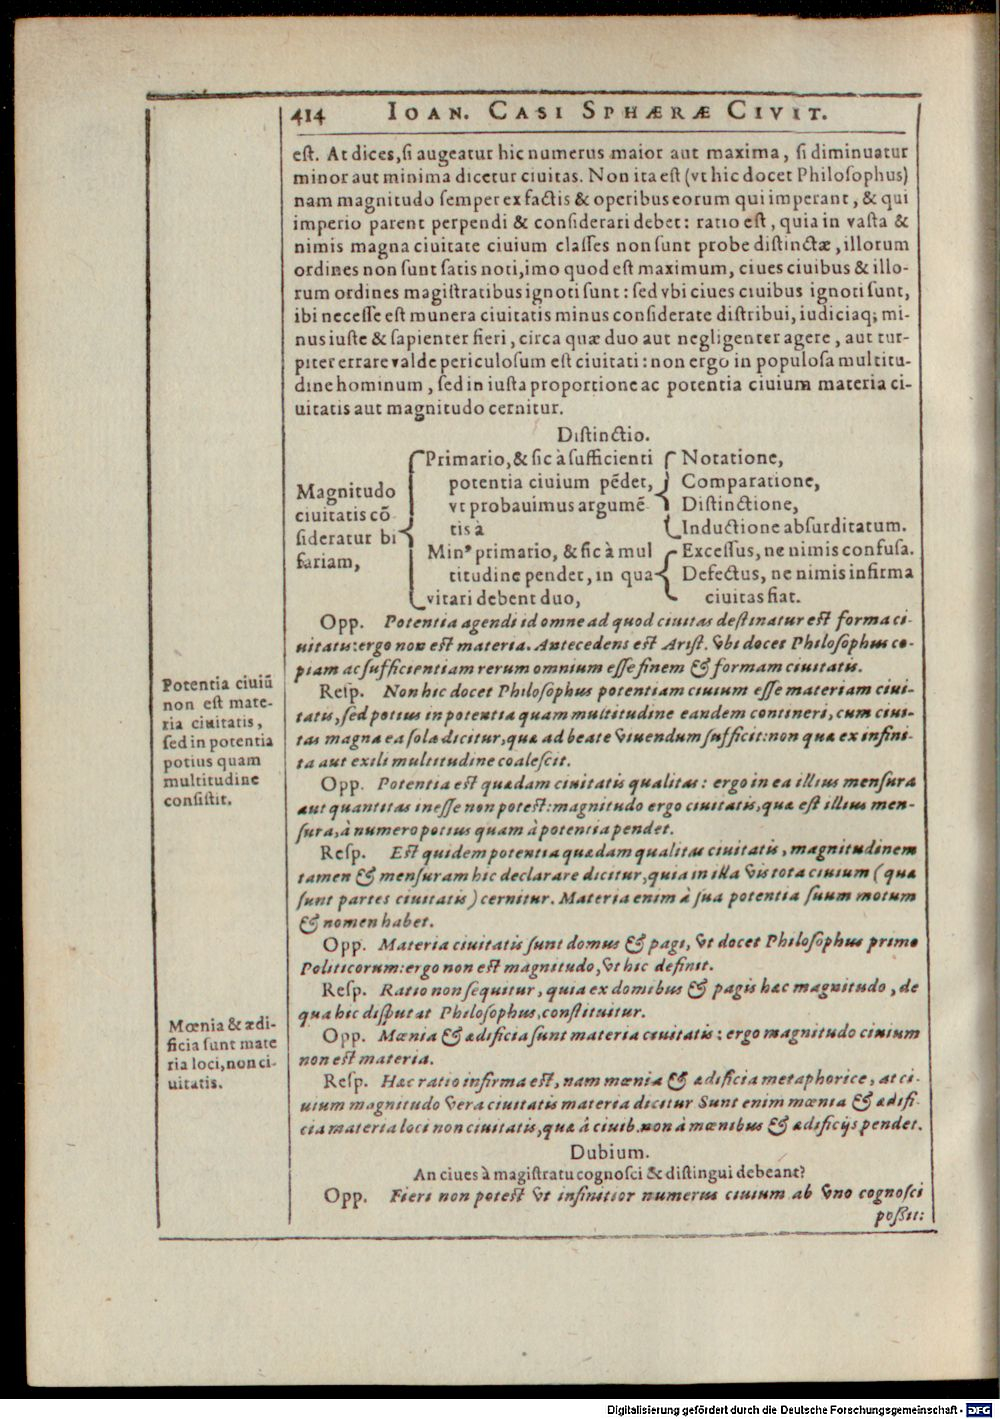 414 IOAN. CASI SPHÆRÆ CIVIT.
eſt. At dices, ſi augeatur hic numerus maior aut maxima, ſi diminuatur
minor aut minima dicetur ciuitas. Non ita eſt (vt hic docet Philoſophus)
nam magnitudo ſemper ex factis & operibus eorum qui imperant, & qui
imperio parent perpendi & conſiderari debet: ratio eſt, quia in vaſta &
nimis magna ciuitate ciuium claſſes non ſunt probe diſtinctæ, illorum
ordines non ſunt ſatis noti, imo quod eſt maximum, ciues ciuibus & illo-
rum ordines magiſtratibus ignoti ſunt: ſed vbi ciues ciuibus ignoti ſunt,
ibi neceſſe eſt munera ciuitatis minus conſiderate diſtribui, iudiciaq; mi-
nus iuſte & ſapienter fieri, circa quæ duo aut negligenter agere, aut tur-
piter errare valde periculoſum eſt ciuitati: non ergo in populoſa multitu-
dine hominum, ſed in iuſta proportione ac potentia ciuium materia ci-
uitatis aut magnitudo cernitur.
Diſtinctio.
Magnitudo
ciuitatis cõ
ſideratur bi
fariam,
Primario, & ſic à ſufficienti
potentia ciuium pẽdet,
vt probauimus argumẽ
tis à
Notatione,
Comparatione,
Diſtinctione,
Inductione abſurditatum.
Minꝰ primario, & ſic à mul
titudine pendet, in qua
vitari debent duo,
Exceſſus, ne nimis confuſa.
Defectus, ne nimis infirma
ciuitas fiat.
Opp. Potentia agendi id omne ad quod ciuitas deſtinatur eſt forma ci-
uitatis: ergo non eſt materia. Antecedens eſt Ariſt. vbi docet Philoſophus co-
piam ac ſufficientiam rerum omnium eſſe finem & formam ciuitatis.
Reſp. Non hic docet Philoſophus potentiam ciuium eſſe materiam ciui-
tatis, ſed potius in potentia quam multitudine eandem contineri, cum ciui-
tas magna ea ſola dicitur, quæ ad beate viuendum ſufficit: non quæ ex infini-
ta aut exili multitudine coaleſcit.
Potentia ciuiũ
non eſt mate-
ria ciuitatis,
ſed in potentia
potius quam
multitudine
conſiſtit.
Opp. Potentia eſt quædam ciuitatis qualitas: ergo in ea illius menſura
aut quantitas ineſſe non poteſt: magnitudo ergo ciuitatis, quæ eſt illius men-
ſura, à numero potius quam à potentia pendet.
Reſp. Eſt quidem potentia quædam qualitas ciuitatis, magnitudinem
tamen & menſuram hic declarare dicitur, quia in illa vis tota ciuium (quæ
ſunt partes ciuitatis) cernitur. Materia enim à ſua potentia ſuum motum
& nomen habet.
Opp. Materia ciuitatis ſunt domus & pagi, vt docet Philoſophus primo
Politicorum: ergo non eſt magnitudo, vt hic definit.
Reſp. Ratio non ſequitur, quia ex domibus & pagis hæc magnitudo, de
qua hic diſputat Philoſophus, conſtituitur.
Opp. Mœnia & ædificia ſunt materia ciuitatis: ergo magnitudo ciuium
non eſt materia.
Mœnia & ædi-
ficia ſunt mate
ria loci, non ci-
uitatis.
Reſp. Hæc ratio infirma eſt, nam mœnia & ædificia metaphorice, at ci-
uium magnitudo vera ciuitatis materia dicitur Sunt enim mœnia & ædifi-
cia materia loci non ciuitatis, quæ à ciuib. non à mœnibus & ædificijs pendet.
Dubium.
An ciues à magiſtratu cognoſci & diſtingui debeant?
Opp. Fieri non poteſt vt infinitior numerus ciuium ab vno cognoſci
poßit:
Digitalisierung gefördert durch die Deutsche Forschungsgemeinschaft - DFG